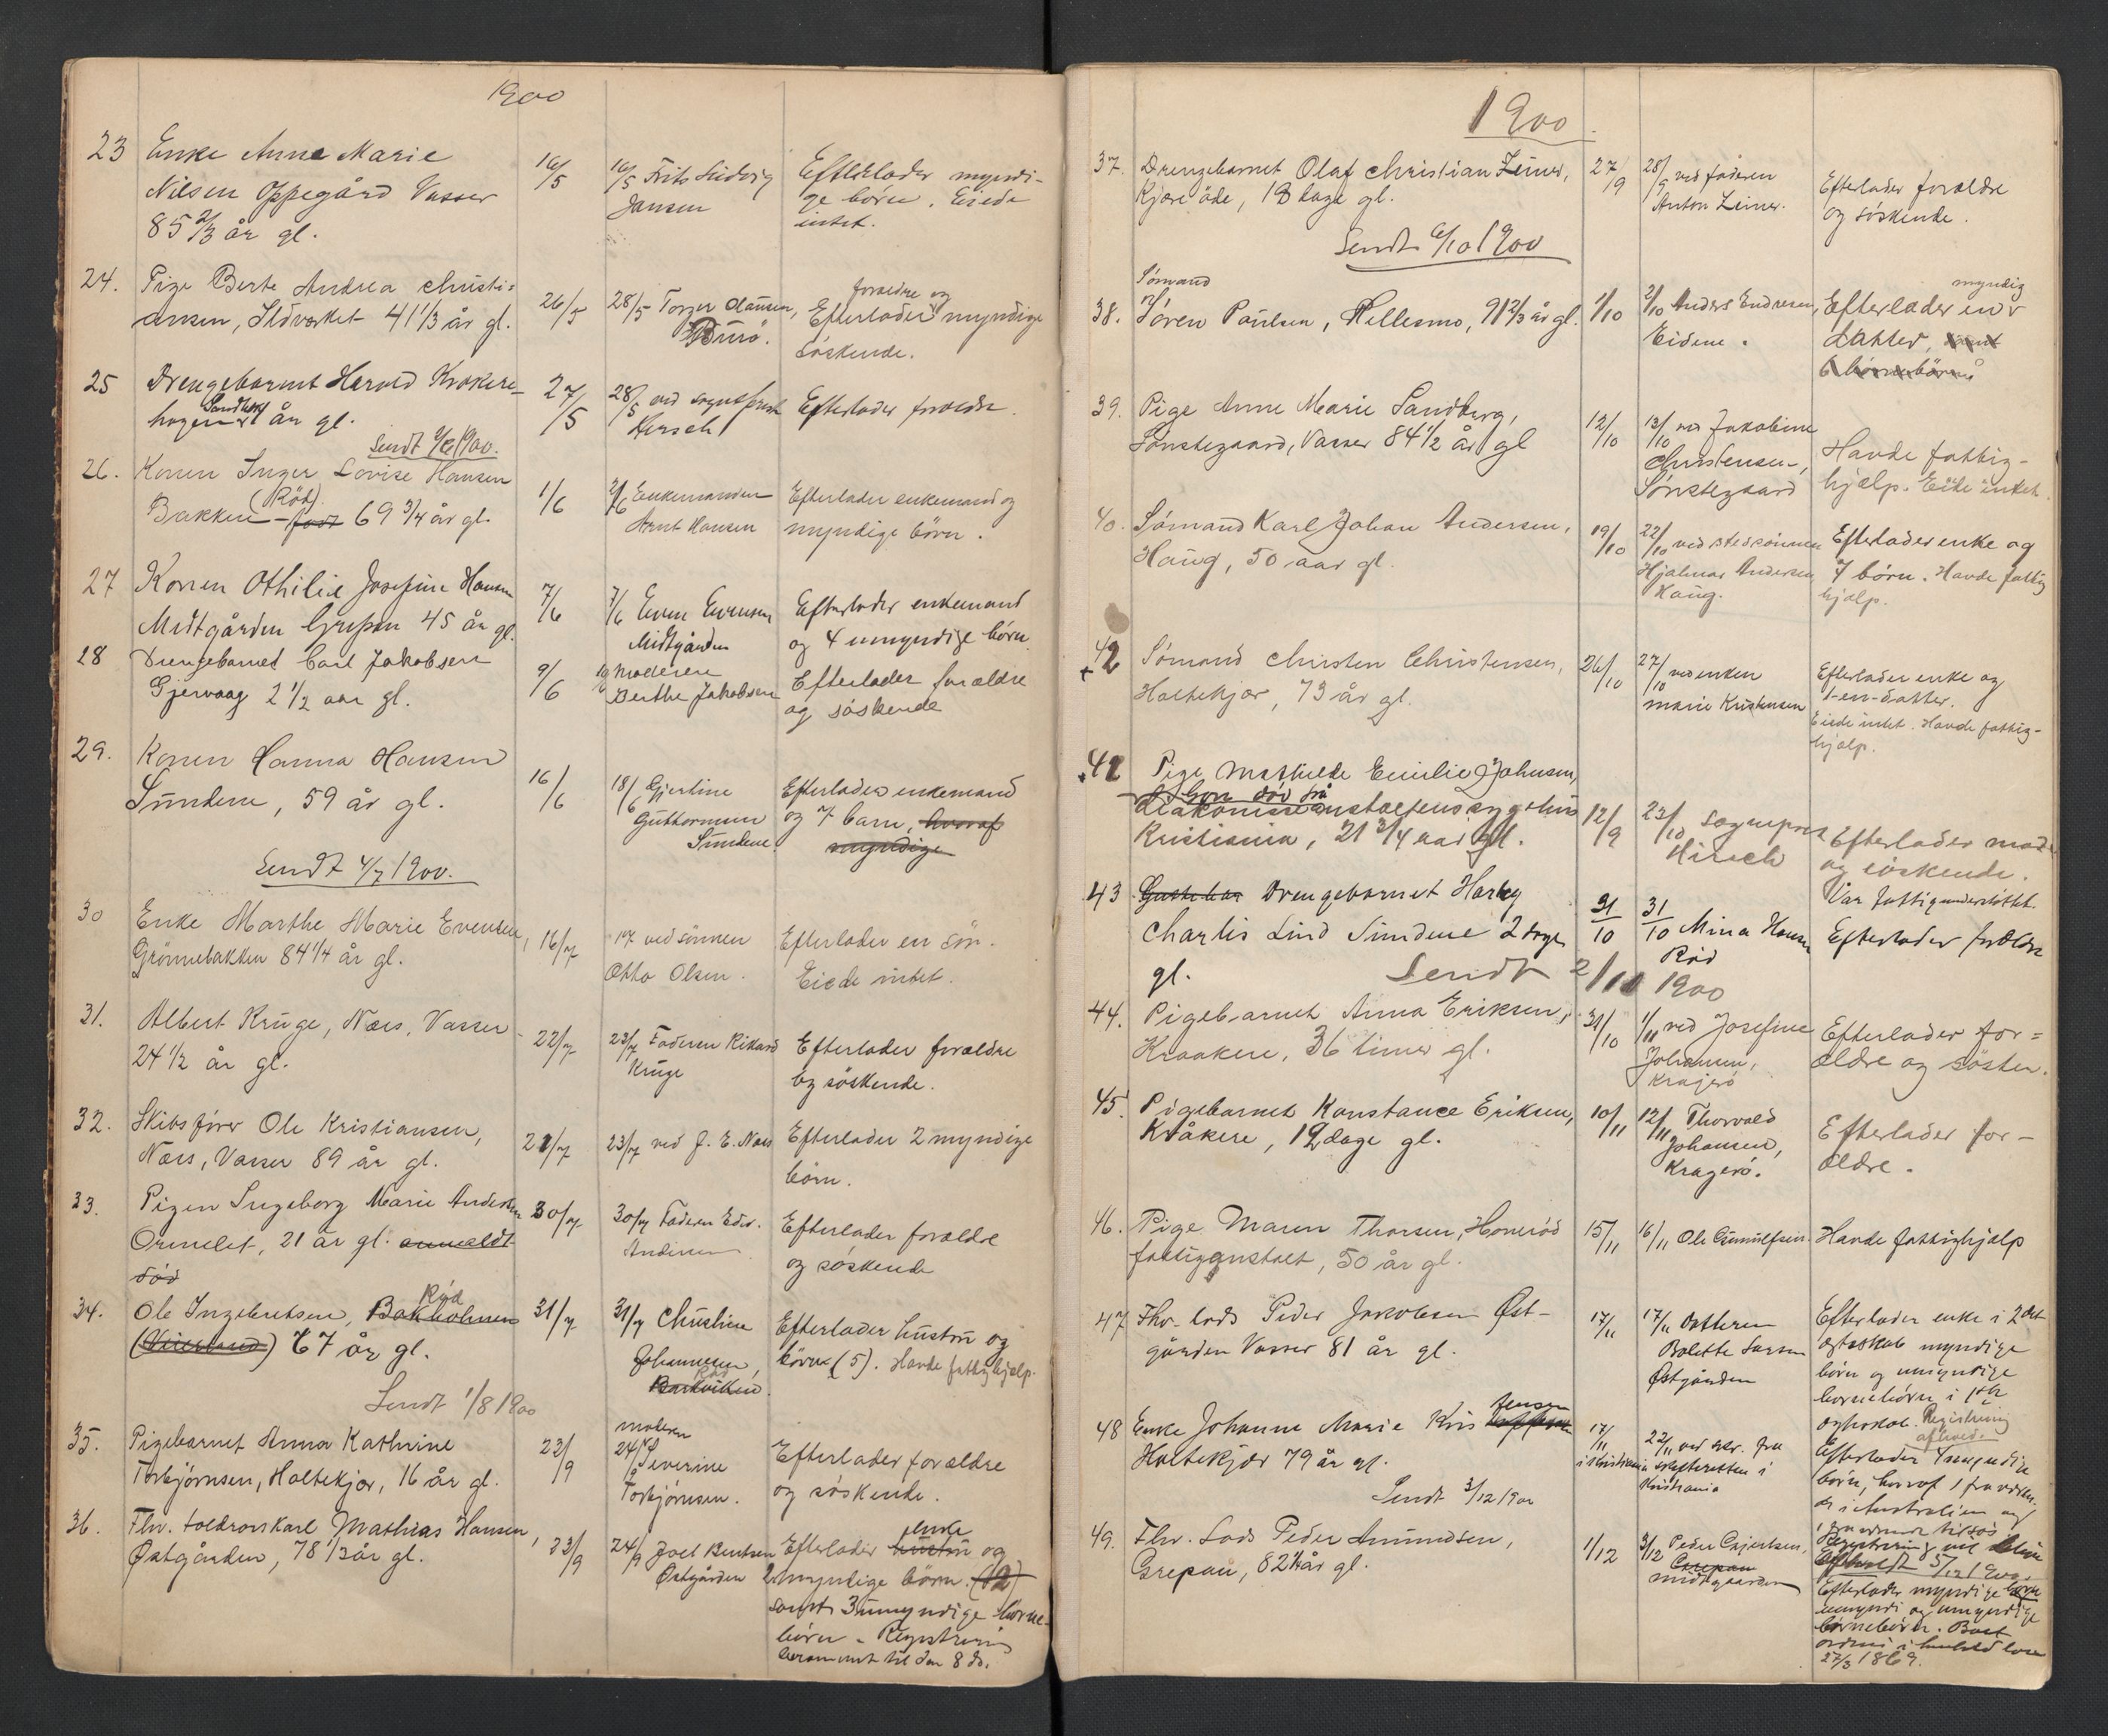 1900
23 Enke Anne Marie
Nilsen Oppegård Vasser
85 2/3 år gl.
16/5
16/5 Frits Ludvig
Jansen
Efterlader myndi-
ge børn. Eiede
intet.
24. Pige Berte Andrea Christi-
ansen, Ildverket 41 1/3 år gl.
26/5
28/5 Torger Olausen,
Burø.
forældre og
Efterlader myndige
søskende.
25 Drengebarnet Harald Krokere-
hagen Sandberg 1 år gl.
27/5
28/5 ved sogneprest
Hersch
Efterlader forældre.
Sendt 1900.
26. Konen Inger Lovise Hansen
(Röd)
Bakken 69 3/4 år gl.
1/6
2/6 Enkemanden
Arnt Hansen
Efterlader enkemand og
myndige børn.
27 Konen Othilie Josefine Hansen
Midtgården Grepan 45 år gl.
7/6
7/6 Even Evensen
Midtgården
Efterlader enkemand
og 4 umyndige børn
28 Drengebarnet Carl Jakobsen
Gjervaag 2 1/2 aar gl.
9/6
Moderen
Berthe Jakobsen
Efterlader forældre
og søskende
29. Konen Hanna Hansen
Sundene, 59 år gl.
16/6
18/6 Gjertine
Guttormsen
Sundene.
Efterlader enkemand
og 7 barn, hvoraf
myndige
Sendt 4/7 1900.
30 Enke Marthe Marie Evensen,
Grönnebakken 84 1/4 år gl.
16/7
17 ved sönnen
Otto Olsen.
Efterlader en søn.
Eiede intet.
31. Albert Kruge, Næs, Vasser
24 1/2 år gl.
22/7
23/7 Faderen Rikard
Kruge
Efterlader forældre
og søskende.
32. Skibsfører Ole Kristiansen,
Næs, Vasser 89 år gl.
21/7
23/7 ved J. E. Næs
Efterlader 2 myndige
børn.
33. Pigen Ingeborg Marie Andersen
Ormelet, 21 år gl. anmeldt
död
30/7
30/7 Faderen Edv.
Andersen
Efterlader forældre
og søskende
34. Ole Ingebretsen, Bakholmen Röd
67 år gl.
31/7
31/7 Christine
Johannesen,
Röd
Barkviken.
Efterlader hustru og
börn (5). Havde fattighjelp.
Sendt 1/8 1900
35. Pigebarnet Anna Kathrine
Torbjörnsen, Holtekjær, 16 år gl.
23/9
moderen
24/9 Severine
Torbjörnsen.
Efterlader forældre
og søskende.
36. Fhv. toldrorskarl Mathias Hansen,
Østgården, 78 1/3 år gl.
23/9
24/9 Joel Bentsen
Østgården
Efterlader hustru enke og
2 myndige børn. (12)
samt 3 umyndige børne-
börn. Registrering
berammet til den 8 ds.
1900
37. Drengebarnet Olaf Christian Zeiner,
Kjære öde, 18 dage gl.
27/9
28/9 ved faderen
Anton Zeiner.
Efterlader forældre
og söskende.
Sendt 6/10 1900
38. Sømand
Sören Paulsen, Hellesmo, 91 2/3 år gl.
1/10
2/10 Anders Endresen,
Eidene.
myndig
Efterlader en
datter, samt
6 børnebörn
39. Pige Anne Marie Sandberg,
Sønstegaard, Vasser 84 1/2 år gl
12/10
13/10 ved Jakobine
Christensen,
Sønstegaard
Havde fattig-
hjelp. Eide intet.
40. Sømand Karl Johan Andersen,
Haug, 50 aar gl.
19/10
22/10 ved stedsønnen
Hjalmar Andersen
Haug.
Efterlader enke og
7 børn. Havde fattig
hjelp.
42 Sømand Christen Christensen,
Holtekjær, 73 år gl.
26/10
27/10 ved enken
Marie Kristensen
Efterlader enke og
en datter.
Eiede intet. Havde fattig-
hjelp.
41 Pige Mathilde Emilie Johnsen,
hun död på
diakonisseanstaltens sygehus
Kristiania, 21 3/4 aar gl.
12/9
23/10 Sogneprest
Hirsch
Efterlader moder
og söskende.
Var fattigunderstöttet.
43 Drengebarnet Harby
Charlis Lind Sundene 2 dage
gl.
31/10
31/10 Mina Hansen
Röd
Efterlader forældre
Sendt 2/11 1900
44. Pigebarnet Anna Eriksen,
Kraakere, 36 timer gl.
31/10
1/11 ved Josefine
Johansen,
Kragerö
Efterlader for=
ældre og søster.
45. Pigebarnet Konstance Eriksen,
Kråkere, 12 dage gl.
10/11
12/11 Thorvald
Johansen,
Kragerö.
Efterlader for-
ældre.
46. Pige Maren Thorsen, Honeröd
fattiganstalt, 50 år gl.
15/11
16/11 Ole Gunulfsen.
Havde fattighjelp
47 Fhv. lods Peder Jakobsen Øst-
gården Vasser 81 år gl.
17/11
17/11 Datteren
Bolette Larsen
Østgården
Efterlader enke i 2det
ægteskab myndige
börn og umyndige
börnebörn i 1ste
ægteskab. Registrering
afholdt.
48 Enke Johanne Marie Kristensen
Holtekjær 79 år gl.
17/11
i Kristiania
22/11 ved skr. fra
skifteretten i
Kristiania
Efterlader 4 myndige
börn, hvoraf 1 fraværen-
de i Australien og
Registrering vil blive
afholdt 5/12 1900.
Sendt 3/12 1900
49. Fhv. Lods Peder Amundsen,
Grepan, 82 1/4 år gl.
1/12
3/12 Peder Gjertsen,
Grepan
Midtgaarden
Efterlader myndige børn
og umyndige
børnebörn.
27/3 1869.